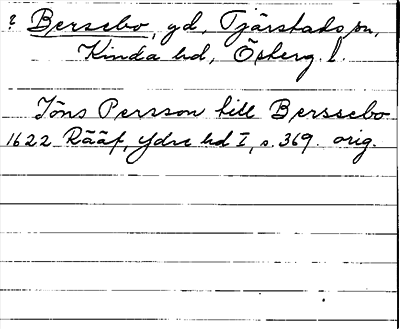 ? Bersebo, gd, Tjärstads sn,
Kinda hd, Österg. l.
Jöns Persson till Berssebo
1622 Rääf, Ydre hd I, s. 369. orig.